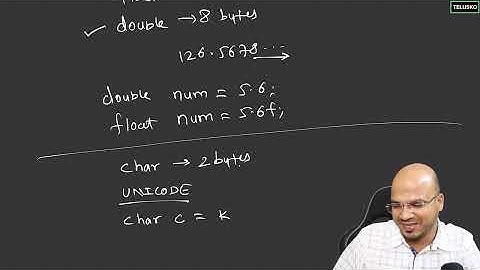 TELUSKO
✓ double → 8 bytes
126.5678...
double num = 5.6;
float num = 5.6f;
char → 2 bytes
UNICODE
char c = k